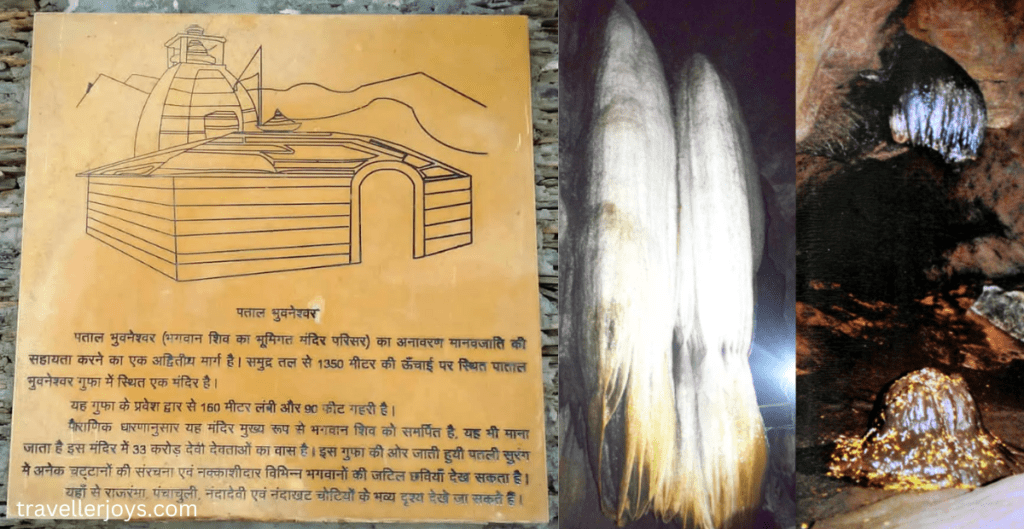 पताल भुवनेश्वर
पताल भुवनेश्वर (भगवान शिव का भूमिगत मंदिर परिसर) का अनावरण मानवजाति की
सहायता करने का एक अद्वितीय मार्ग है। समुद्र तल से 1350 मीटर की ऊँचाई पर स्थित पाताल
भुवनेश्वर गुफा में स्थित एक मंदिर है।
यह गुफा के प्रवेश द्वार से 160 मीटर लंबी और 90 फीट गहरी है।
पौराणिक धारणानुसार यह मंदिर मुख्य रूप से भगवान शिव को समर्पित है, यह भी माना
जाता है इस मंदिर में 33 करोड़ देवी देवताओं का वास है। इस गुफा की ओर जाती हुयी पतली सुरंग
में अनेक चट्टानों की संरचना एवं नक्काशीदार विभिन्न भगवानों की जटिल छवियाँ देख सकता है।
यहाँ से राजरंभा, पंचाचुली, नंदादेवी एवं नंदाखट चोटियों के भव्य दृश्य देखे जा सकते हैं।
travellerjoys.com